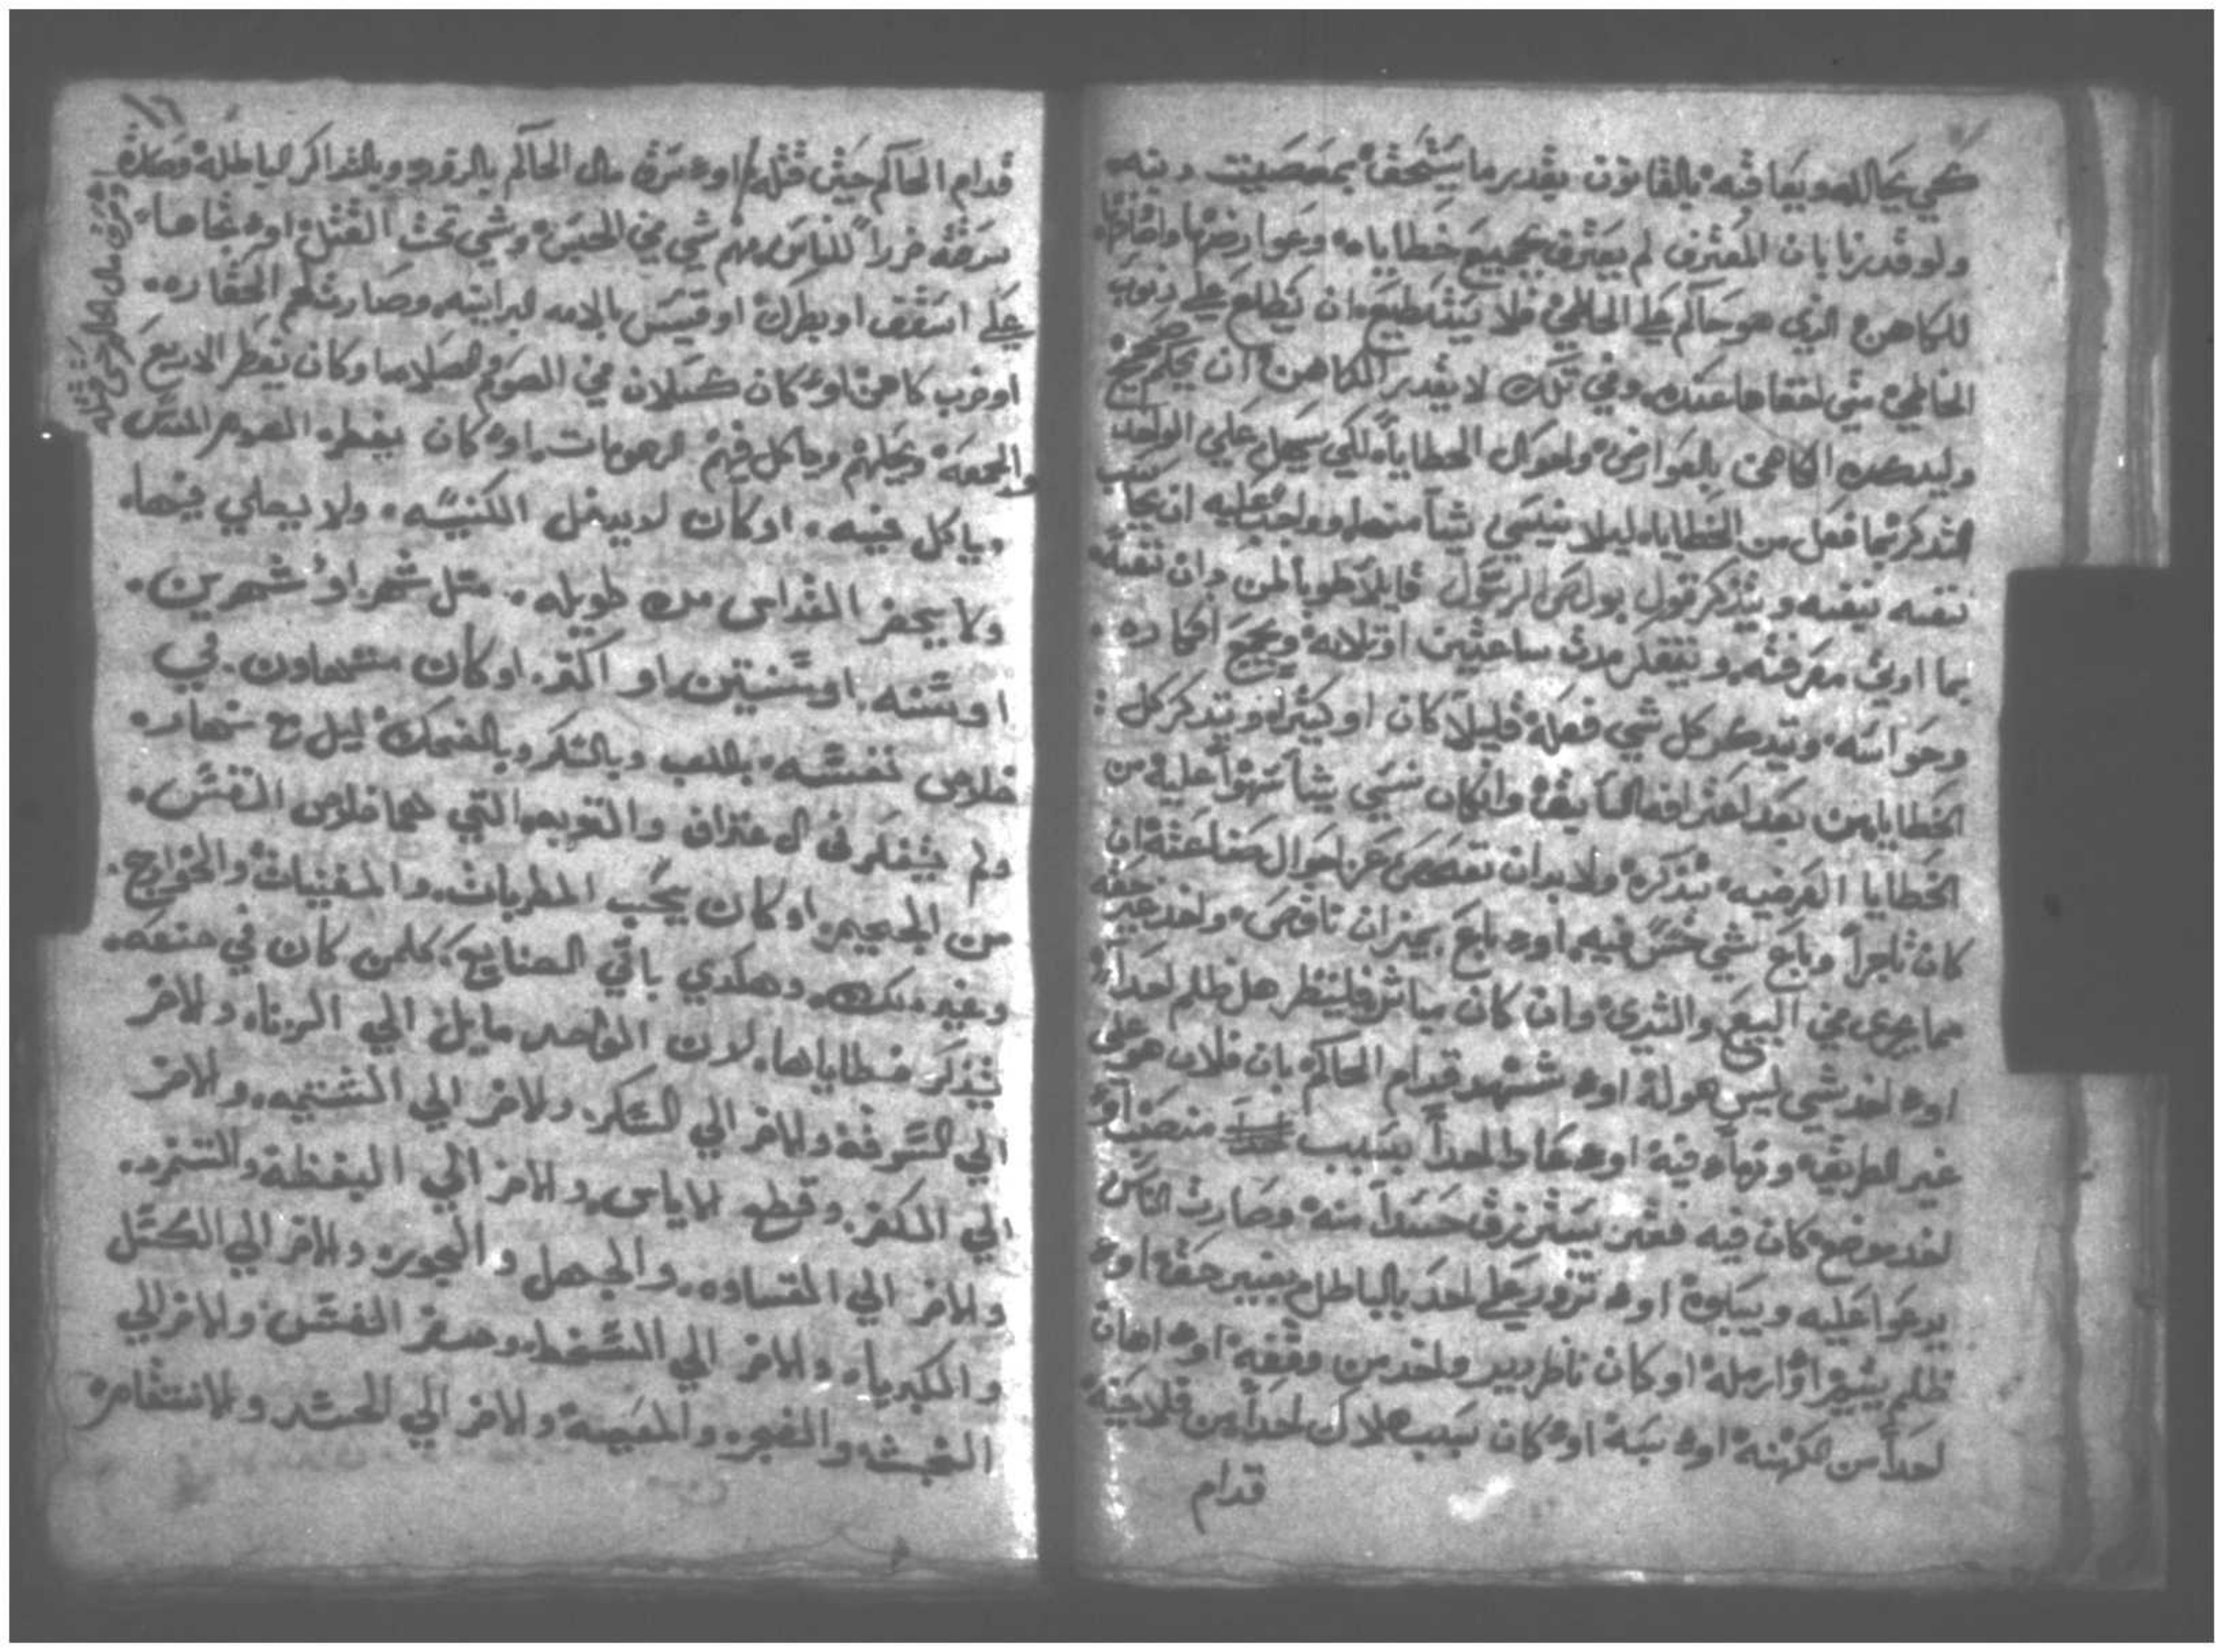 كي يحاللـه ويعاقبه بالقانون بقدر ما يستحق بمعصيت دنبه
ولو قدرنا بان المعترف لم يعترف بجميع خطاياه وعوارضها واخفاها
للكاهن الدي هو حاكم علي الخاطي فلا يستطيع ان يطلع علي دنوب
الخاطي متي اخفاها عنه وفي تلك لا يقدر الكاهن ان يحكم صحيح
الكاهن بالعوارض واحوال الخطايا لكي يسهل علي الواحد
التدكر بما فعل من الخطايا ليلا ينسي شياً منها وواجب عليه ان يحاسب
نفسه بنفسه ويتدكر قول بولص الرسول قايلاً طوبا لمن دان نفسه
بما اوتي معرفته ويتفكر مدت ساعتين او تلاته ويجمع افكاره
وحواسه ويتدكر كل شي فعله قليلاً كان او كتيراً ويتدكر كل
الخطايا من بعد اعترافه السابق وان كان نسي شياً سهواً عليه من
الخطايا العرضيه يتدكره ولا بد ان تفحص عن احوال صناعته ان
كان تاجراً وباع شي غش فيه اوه باع بميزان ناقص واخد غير حقه
مما جرى في البيع والشري وان كان فلينظر هل ظلم احداً
اوه اخد شي ليس هو له اوه شهد قدام الحاكم بان فلان هو علي
غير الطريقه فيه اوه احداً بسبب منصب اوه
اخد موضع كان فيه فقير يسترزق حسداً منه وصارت الناس
يدعوا عليه اوه تزور علي احد بالباطل بغير حقه اوه
ظلم يتيم او ارمله او كان ناظر دير واخد من وقفه اوه اهان
احداً من الكهنه اوه سبه اوه كان بسبب هلاك احداً من فلاحينه
قدام
قدام الحاكم حين قتله اوه سرق مال الحاكم بالزور وبالتداكر الباطله وصارة
سرقته ضرراً للناس منهم شي في الحبس وشي تحت القتل اوه
علي اسقف او بطرك او قسيس وصارت لهم الحقاره
او ضرب كاهن اوه كان كسلان في الصوم والصلاه وكان يفطر الاربع
والجمعه وياكل فيهم اوه كان يفطر الصوم المقدس
وياكل فيه او كان لا يدخل الكنيسه ولا يصلي فيها
ولا يحضر القداس مده طويله متل شهر او شهرين
او سنه او سنتين او اكتر او كان متهاون في
خلاص نفسه باللعب وبالسكر وبالضحك ليل مع نهاره
ولم يتفكر في الاعتراف والتوبه التي هما خلاص النفس
من الجحيم او كان يحب المطربات والمغنيات
وغير دلك وهكدي باقي الصنايع كلمن كان في صنعه
يتدكر خطاياها لان الواحد مايل الي الزنا والاخر
الي السرقه والاخر الي السكر والاخر الي الشتيمه والاخر
الي الكفر وقطع الاياس والاخر الي البغضه
والاخر الي القساوه والجهل والاخر الي الكسل
والكبريا والاخر الي السخط وصغر النفس والاخر الي
الخبث والاخر الي الحسد والانتقام
اوه سرق مال الحاكم حين قتله